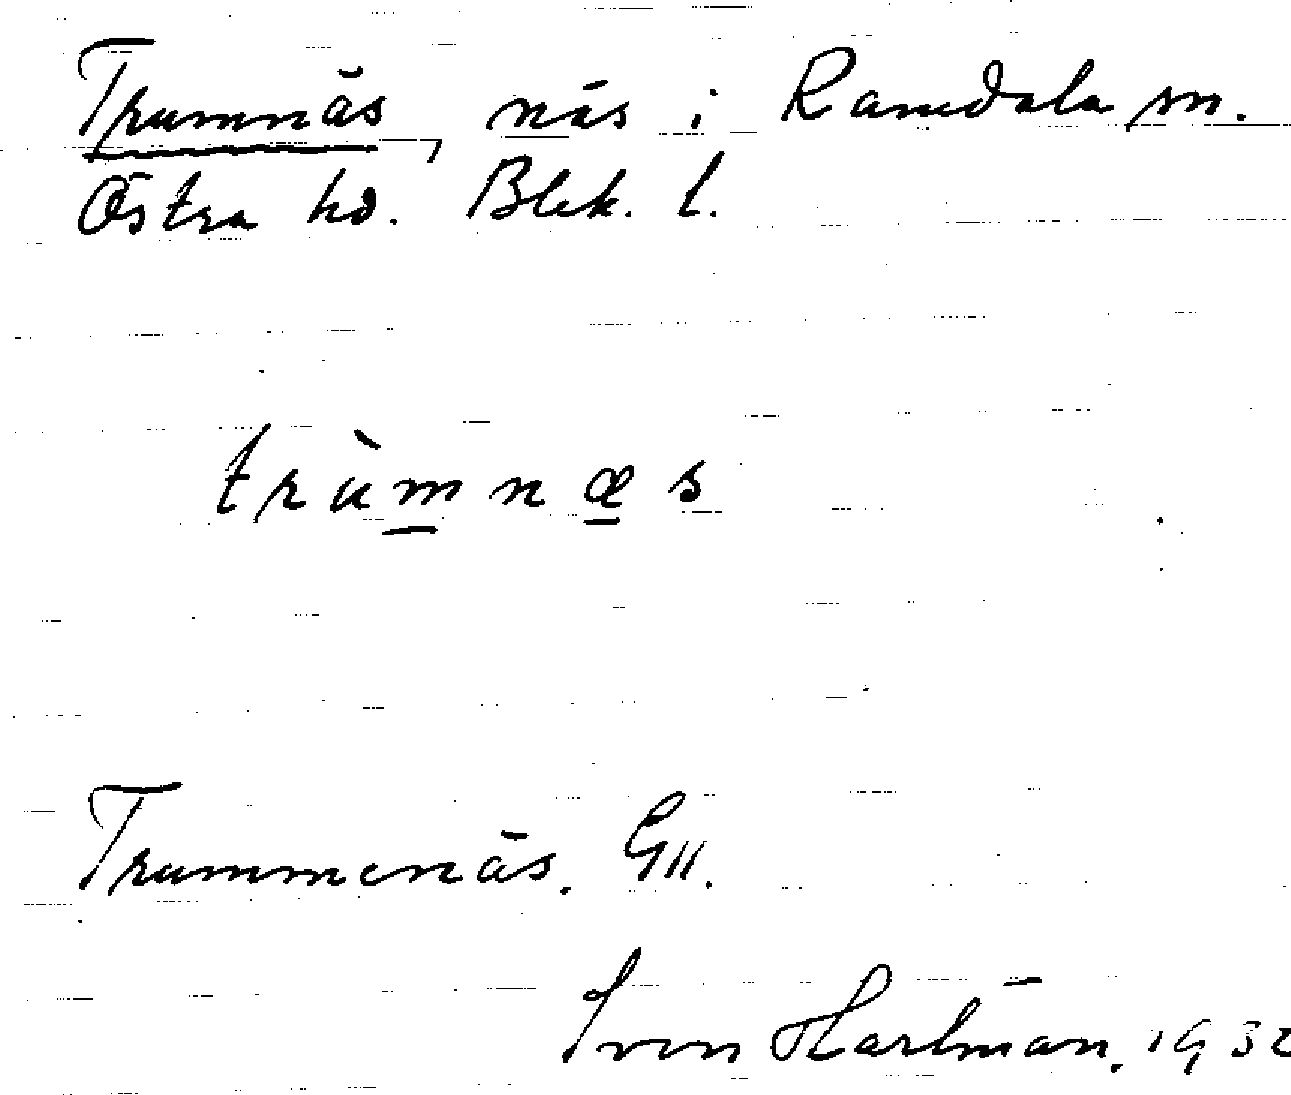 Trumnäs, näs i Ramdala sn.
Östra hd. Blek. l.
trùmnæs
Trummenäs. GII.
Sven Hartman. 1932